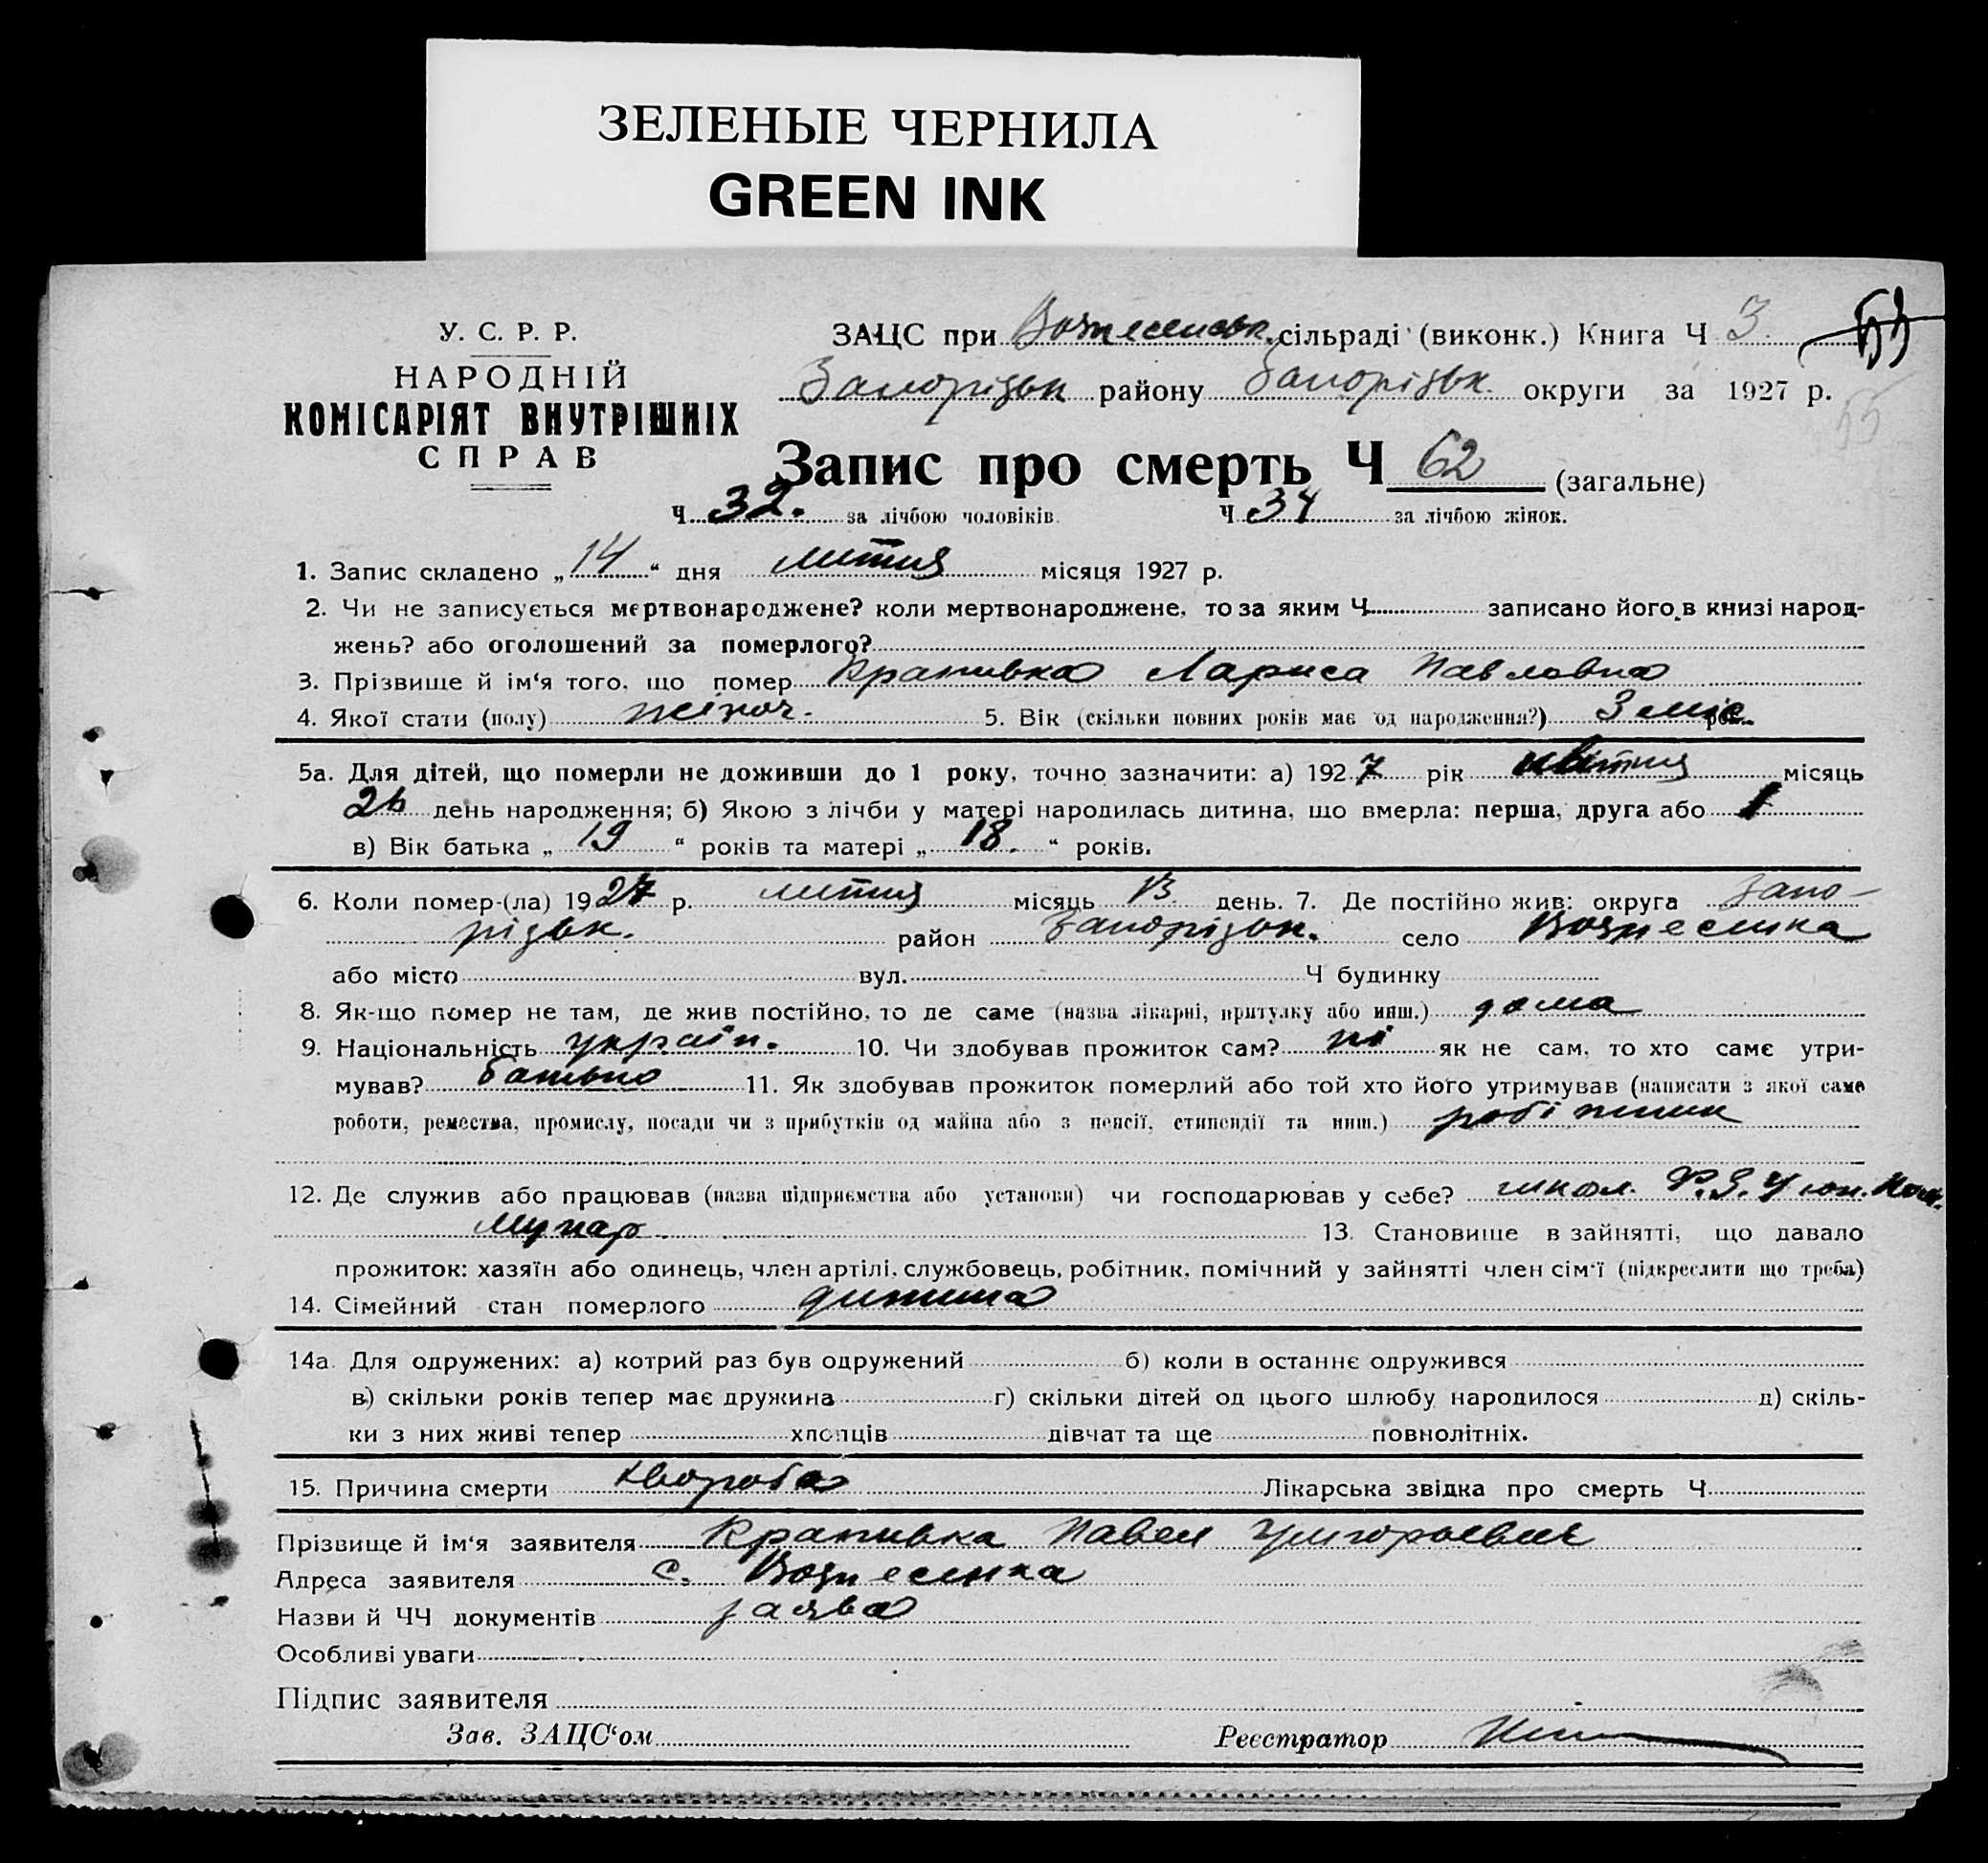 ЗЕЛЕНЫЕ ЧЕРНИЛА
GREEN INK
У. С. Р. Р.
НАРОДНІЙ
КОМІСАРІЯТ ВНУТРІШНІХ
СПРАВ
ЗАЦС при Вознесенськ. сільраді (виконк.) Книга Ч 3. 53
Запорізьк району Запорізьк. округи за 1927 р.
55
Запис про смерть Ч 62 (загальне)
Ч 32. за лічбою чоловіків. Ч 34 за лічбою жінок.
1. Запис складено „14“ дня липня місяця 1927 р.
2. Чи не записується мертвонароджене? коли мертвонароджене, то за яким Ч записано його в книзі народ-
жень? або оголошений за померлого?
3. Прізвище й ім‘я того, що помер Крапивка Лариса Павловна
4. Якої стати (полу) жіноч. 5. Вік (скільки повних років має од народження?) 3 міс.
5а. Для дітей, що померли не доживши до 1 року, точно зазначити: а) 1927 рік квітня місяць
26 день народження; б) Якою з лічби у матері народилась дитина, що вмерла: перша, друга або 1
в) Вік батька „19“ років та матері „18.“ років.
6. Коли помер-(ла) 1927 р. липня місяць 13 день. 7. Де постійно жив: округа Запо-
різьк. район Запорізьк. село Вознесенка
або місто вул. Ч будинку
8. Як-що помер не там, де жив постійно, то де саме (назва лікарні, притулку або инш.) дома
9. Національність україн. 10. Чи здобував прожиток сам? ні як не сам, то хто саме утри-
мував? батько 11. Як здобував прожиток померлий або той хто його утримував (написати з якої саме
роботи, ремества, промислу, посади чи з прибутків од майна або з пенсії, стипендії та инш.) робітник
12. Де служив або працював (назва підприємства або установи) чи господарював у себе? школ. Ф.З.У
13. Становище в зайнятті, що давало
прожиток: хазяїн або одинець, член артілі, службовець, робітник, помічний у зайнятті член сім‘ї (підкреслити що треба)
14. Сімейний стан померлого дитина
14а. Для одружених: а) котрий раз був одружений б) коли в останнє одружився
в) скільки років тепер має дружина г) скільки дітей од цього шлюбу народилося д) скіль-
ки з них живі тепер хлопців дівчат та ще повнолітніх.
15. Причина смерти хвороба Лікарська звідка про смерть Ч
Прізвище й ім‘я заявителя Крапивка Павел Григорьевич
Адреса заявителя с. Вознесенка
Назви й ЧЧ документів заява
Особливі уваги
Підпис заявителя
Зав. ЗАЦС‘ом Реєстратор